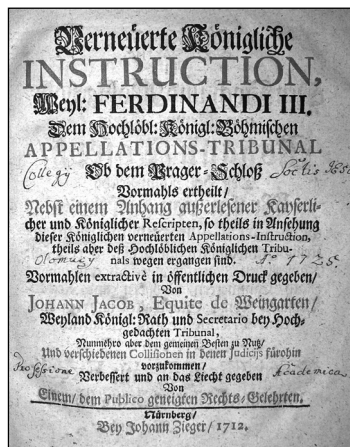 Verneuerte Königliche
INSTRUCTION,
Weyl: FERDINANDI III.
Dem Hochlöbl: Königl: Böhmischen
APPELLATIONS-TRIBUNAL
Collegij Ob dem Prager-Schloß Soctis
Vormahls ertheilt/
Nebst einem Anhang außerlesener Kayserli-
cher und Königlicher Rescripten, so theils in Ansehung
dieser Königlichen verneuerten Appellations-Instruction,
theils aber deß Hochlöblichen Königlichen Tribu-
Olomucij nals wegen ergangen sind. Aº 1725.
Vormahlen extractivè in öffentlichen Druck gegeben/
Von
JOHANN JACOB, Equite de Weingarten/
Weyland Königl: Rath und Secretario bey Hoch-
gedachten Tribunal,
Nunmehro aber dem gemeinen Besten zu Nutz/
Und verschiedenen Collisionen in denen Judicijs fürohin
vorzukommen/
Professione Verbessert und an das Liecht gegeben Academica
Von
Einem/ dem Publico geneigten Rechts-Gelehrten.
Nürnberg/
Bey Johann Zieger/ 1712.